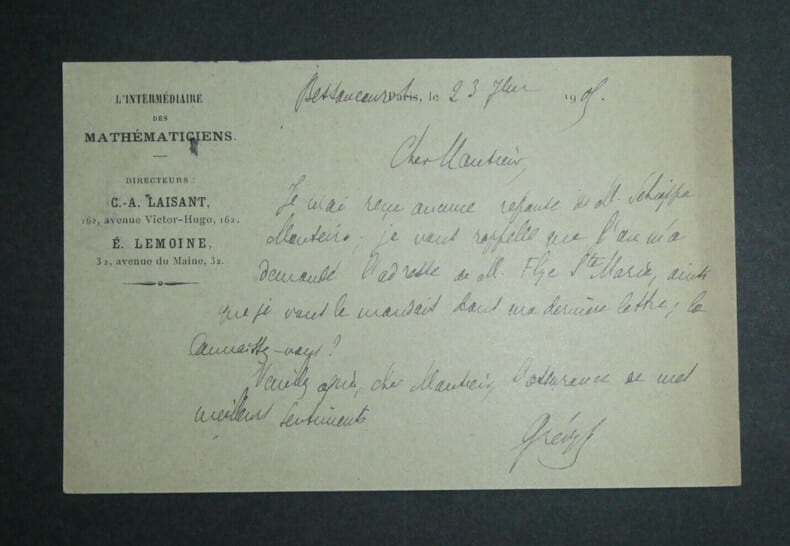 L'INTERMÉDIAIRE
DES
MATHÉMATICIENS.
DIRECTEURS :
C.-A. LAISANT,
162, avenue Victor-Hugo, 162.
É. LEMOINE,
32, avenue du Maine, 32.
Bessancourt Paris, le 23 7bre 1905.
Cher Monsieur,
Je n'ai reçu aucune réponse de M. Schiappa
Monteiro; je vous rappelle que l'on m'a
demandé l'adresse de M. Flye Ste Marie, ainsi
que je vous le mandais dans ma dernière lettre; la
connaissez-vous?
Veuillez agréer, cher Monsieur, l'assurance de mes
meilleurs sentiments